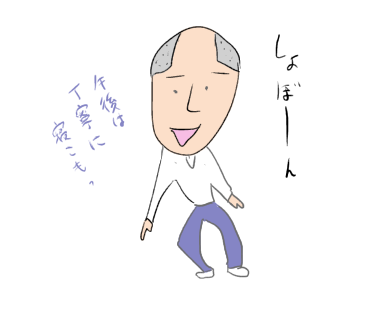 しょぼーん
午後は
丁寧に
寝こもっ